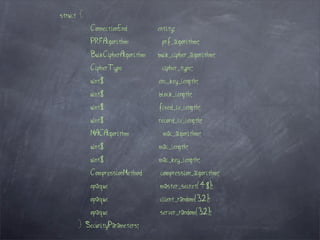 struct {
ConnectionEnd entity;
PRFAlgorithm prf_algorithm;
BulkCipherAlgorithm bulk_cipher_algorithm;
CipherType cipher_type;
uint8 enc_key_length;
uint8 block_length;
uint8 fixed_iv_length;
uint8 record_iv_length;
MACAlgorithm mac_algorithm;
uint8 mac_length;
uint8 mac_key_length;
CompressionMethod compression_algorithm;
opaque master_secret[48];
opaque client_random[32];
opaque server_random[32];
} SecurityParameters;